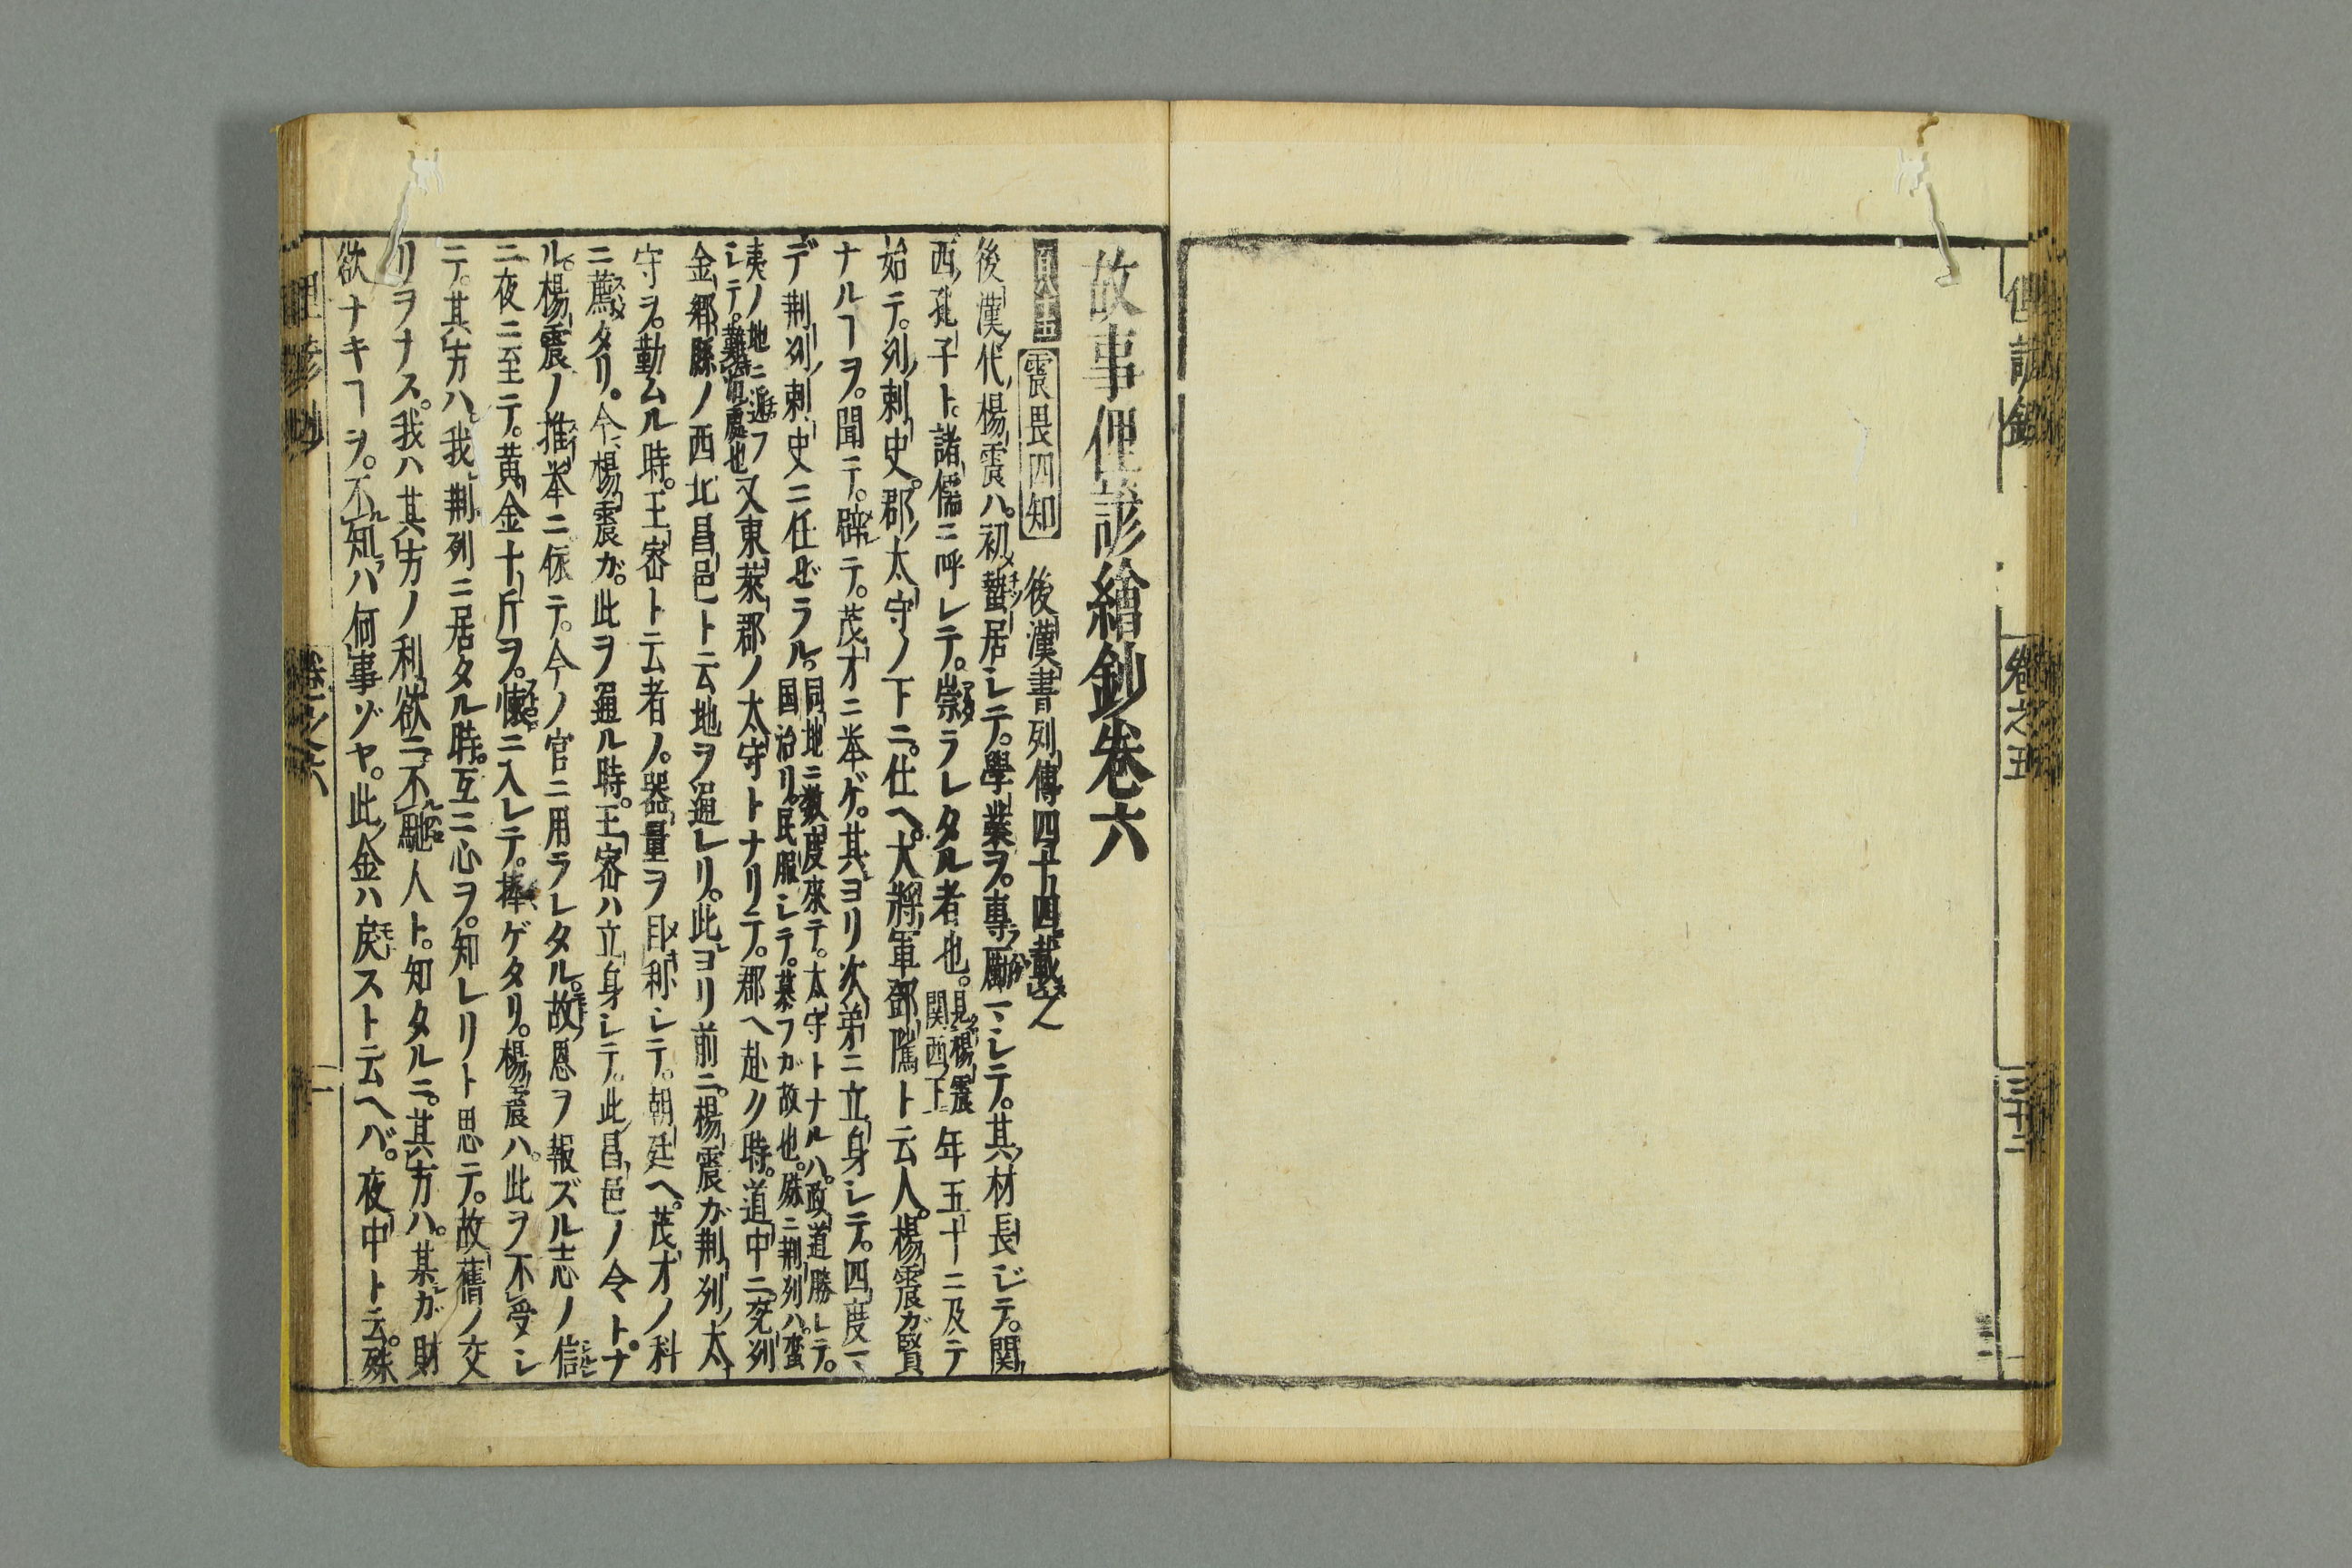 俚諺鈔
卷之五
三十二
故事俚諺繪鈔卷六
震畏四知 後漢書列傳四十四載之
後漢代楊震ハ。初蟄居シテ。學業ヲ。專勵シテ。其材長ジテ。関
西孔子ト。諸儒ニ呼レテ。崇ラレタル者也。見楊震関西下 年五十ニ及テ
始テ。列刺史。郡太守ノ下ニ。仕ヘ。大將軍鄧隲ト云人。楊震ガ賢
ナルヿヲ。聞テ。辟テ。茂才ニ挙ゲ。其ヨリ次第ニ立身シテ。四度
デ荆列刺史ニ任ゼラル。同地ニ数度來テ。太守トナルハ。政道勝レテ。国治リ民服シテ。慕フガ故也。殊ニ荆列ハ。蛮
夷ノ地ニ近フシテ。難治処也 又東萊郡ノ太守トナリテ。郡ヘ赴ク時。道中ニ兖列
金郷縣ノ西北昌邑ト云地ヲ通レリ。此ヨリ前ニ。楊震ガ荆列太
守ヲ。勤ムル時。王密ト云者ノ。器量ヲ目利シテ。朝廷ヘ。茂才ノ科
ニ薦タリ。今楊震ガ。此ヲ通ル時。王密ハ立身シテ。此昌邑ノ令トナ
ル。楊震ノ推挙ニ依テ。今ノ官ニ用ラレタル。故恩ヲ報ズル志ノ信
ニ夜ニ至テ。黄金十斤ヲ。懐ニ入レテ。捧ゲタリ。楊震ハ。此ヲ不受シ
テ。其方ハ。我荆列ニ居タル時。互ニ心ヲ。知レリト思テ。故舊ノ交
リヲナス。我ハ其方ノ利欲ニ不馳人ト。知タルニ。其方ハ。某ガ財
欲ナキヿヲ。不知ハ何事ゾヤ。此金ハ戻ストイ云ヘバ。夜中ト云。殊
俚諺鈔
卷之六
一